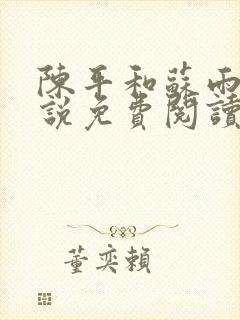 陳平和蘇雨
說免費閱讀
董奕賴